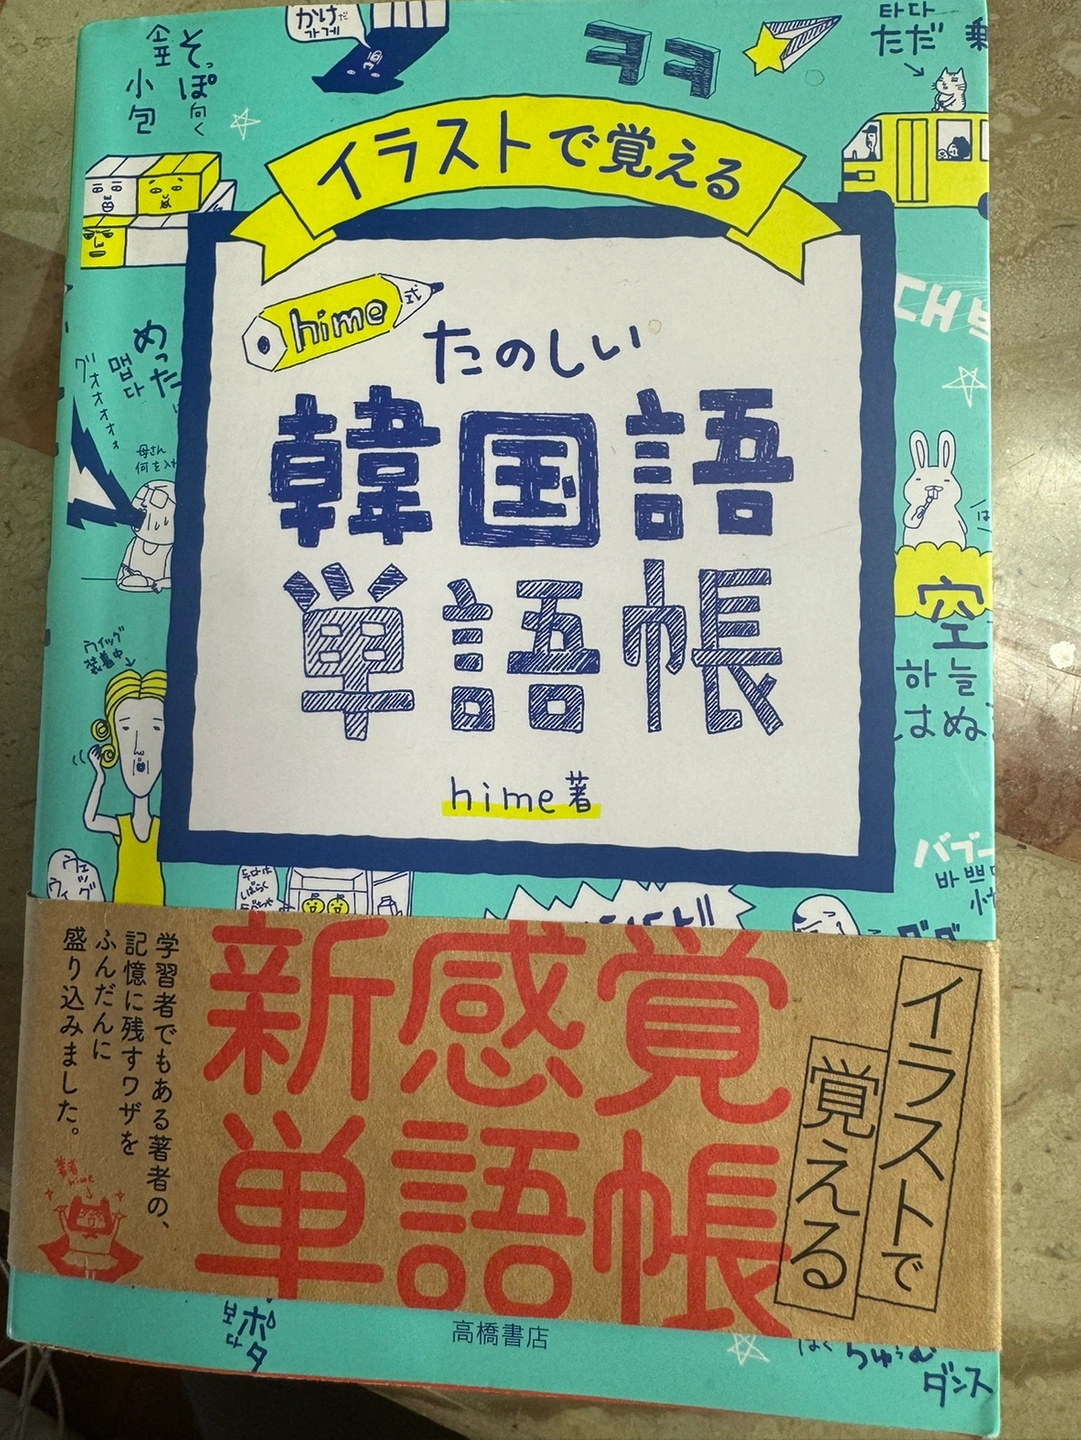 かけだ
가게
そっぽ向く
소포
小包
ㅋㅋ
타다
ただ
乗
イラストで覚える
hime式
たのしい
韓国語
単語帳
hime著
대ㅂ
めった
맵다
グォォォォォ
母さん
何を入れ
空
하늘
はぬ
ウィッグ
装着中
バブー
바쁘다
学習者でもある著者の、
記憶に残すワザを
ふんだんに
盛り込みました。
著者
hime
新感覚
単語帳
イラストで
覚える
보다
ポタ
高橋書店
ちゅうむ
ダンス